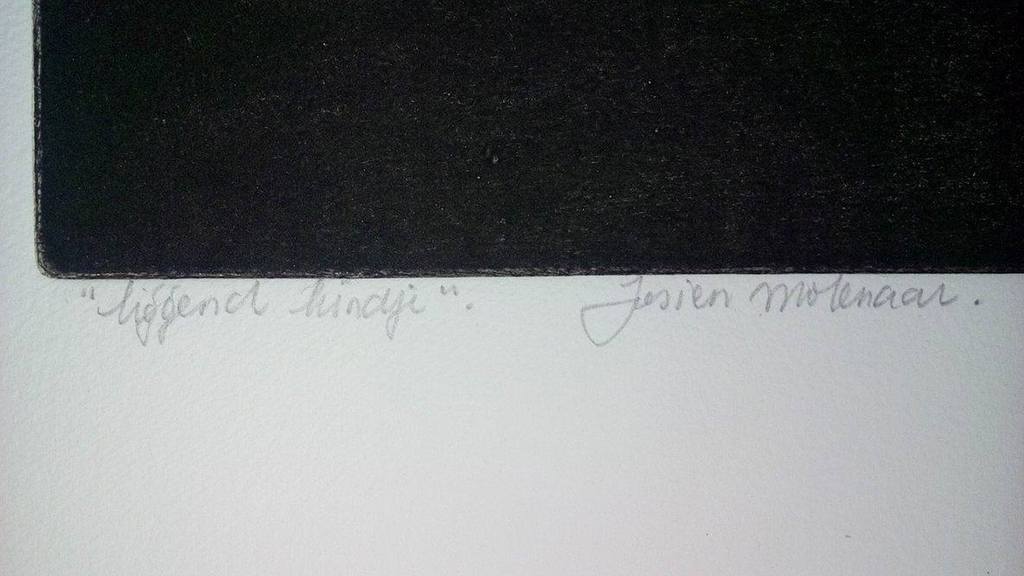 "liggend kindje". Josien Molenaar.